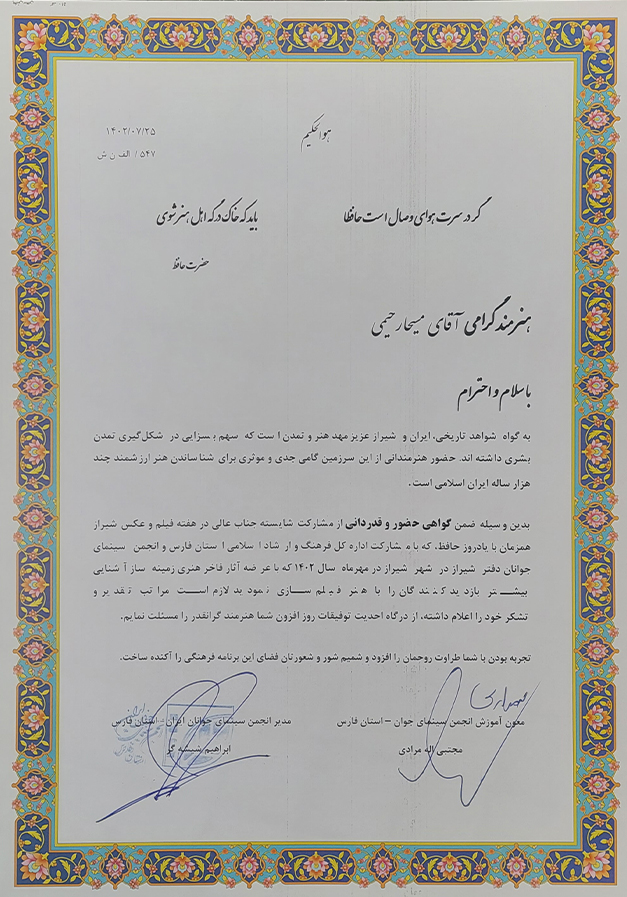 هوالحکیم
۱۴۰۲/۰۷/۲۵
۵۴۷ / الف ن ش
گر در سرت هوای وصال است حافظا باید که خاک درگه اهل هنر شوی
حضرت حافظ
هنرمند گرامی آقای میحا رحیمی
با سلام و احترام
به گواه شواهد تاریخی، ایران و شیراز عزیز مهد هنر و تمدن است که سهم بسزایی در شکل‌گیری تمدن
بشری داشته اند. حضور هنرمندانی از این سرزمین گامی جدی و موثری برای شناساندن هنر ارزشمند چند
هزار ساله ایران اسلامی است.
بدین وسیله ضمن گواهی حضور و قدردانی از مشارکت شایسته جناب عالی در هفته فیلم و عکس شیراز
همزمان با یادروز حافظ، که با مشارکت اداره کل فرهنگ و ارشاد اسلامی استان فارس و انجمن سینمای
جوانان دفتر شیراز در شهر شیراز در مهرماه سال ۱۴۰۲ که با عرضه آثار فاخر هنری زمینه ساز آشنایی
بیشتر بازدیدکنندگان را با هنر فیلم سازی نمودید لازم است مراتب تقدیر و
تشکر خود را اعلام داشته، از درگاه احدیت توفیقات روز افزون شما هنرمند گرانقدر را مسئلت نمایم.
تجربه بودن با شما طراوت روحمان را افزود و شمیم شور و شعورتان فضای این برنامه فرهنگی را آکنده ساخت.
معون آموزش انجمن سینمای جوان – استان فارس
مجتبی اله مرادی
مدیر انجمن سینمای جوانان ایران - استان فارس
ابراهیم شیشه گر